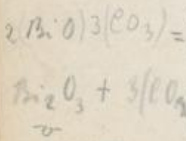 2(BiO)3(CO3) =
Bi2O3 + 3(CO2